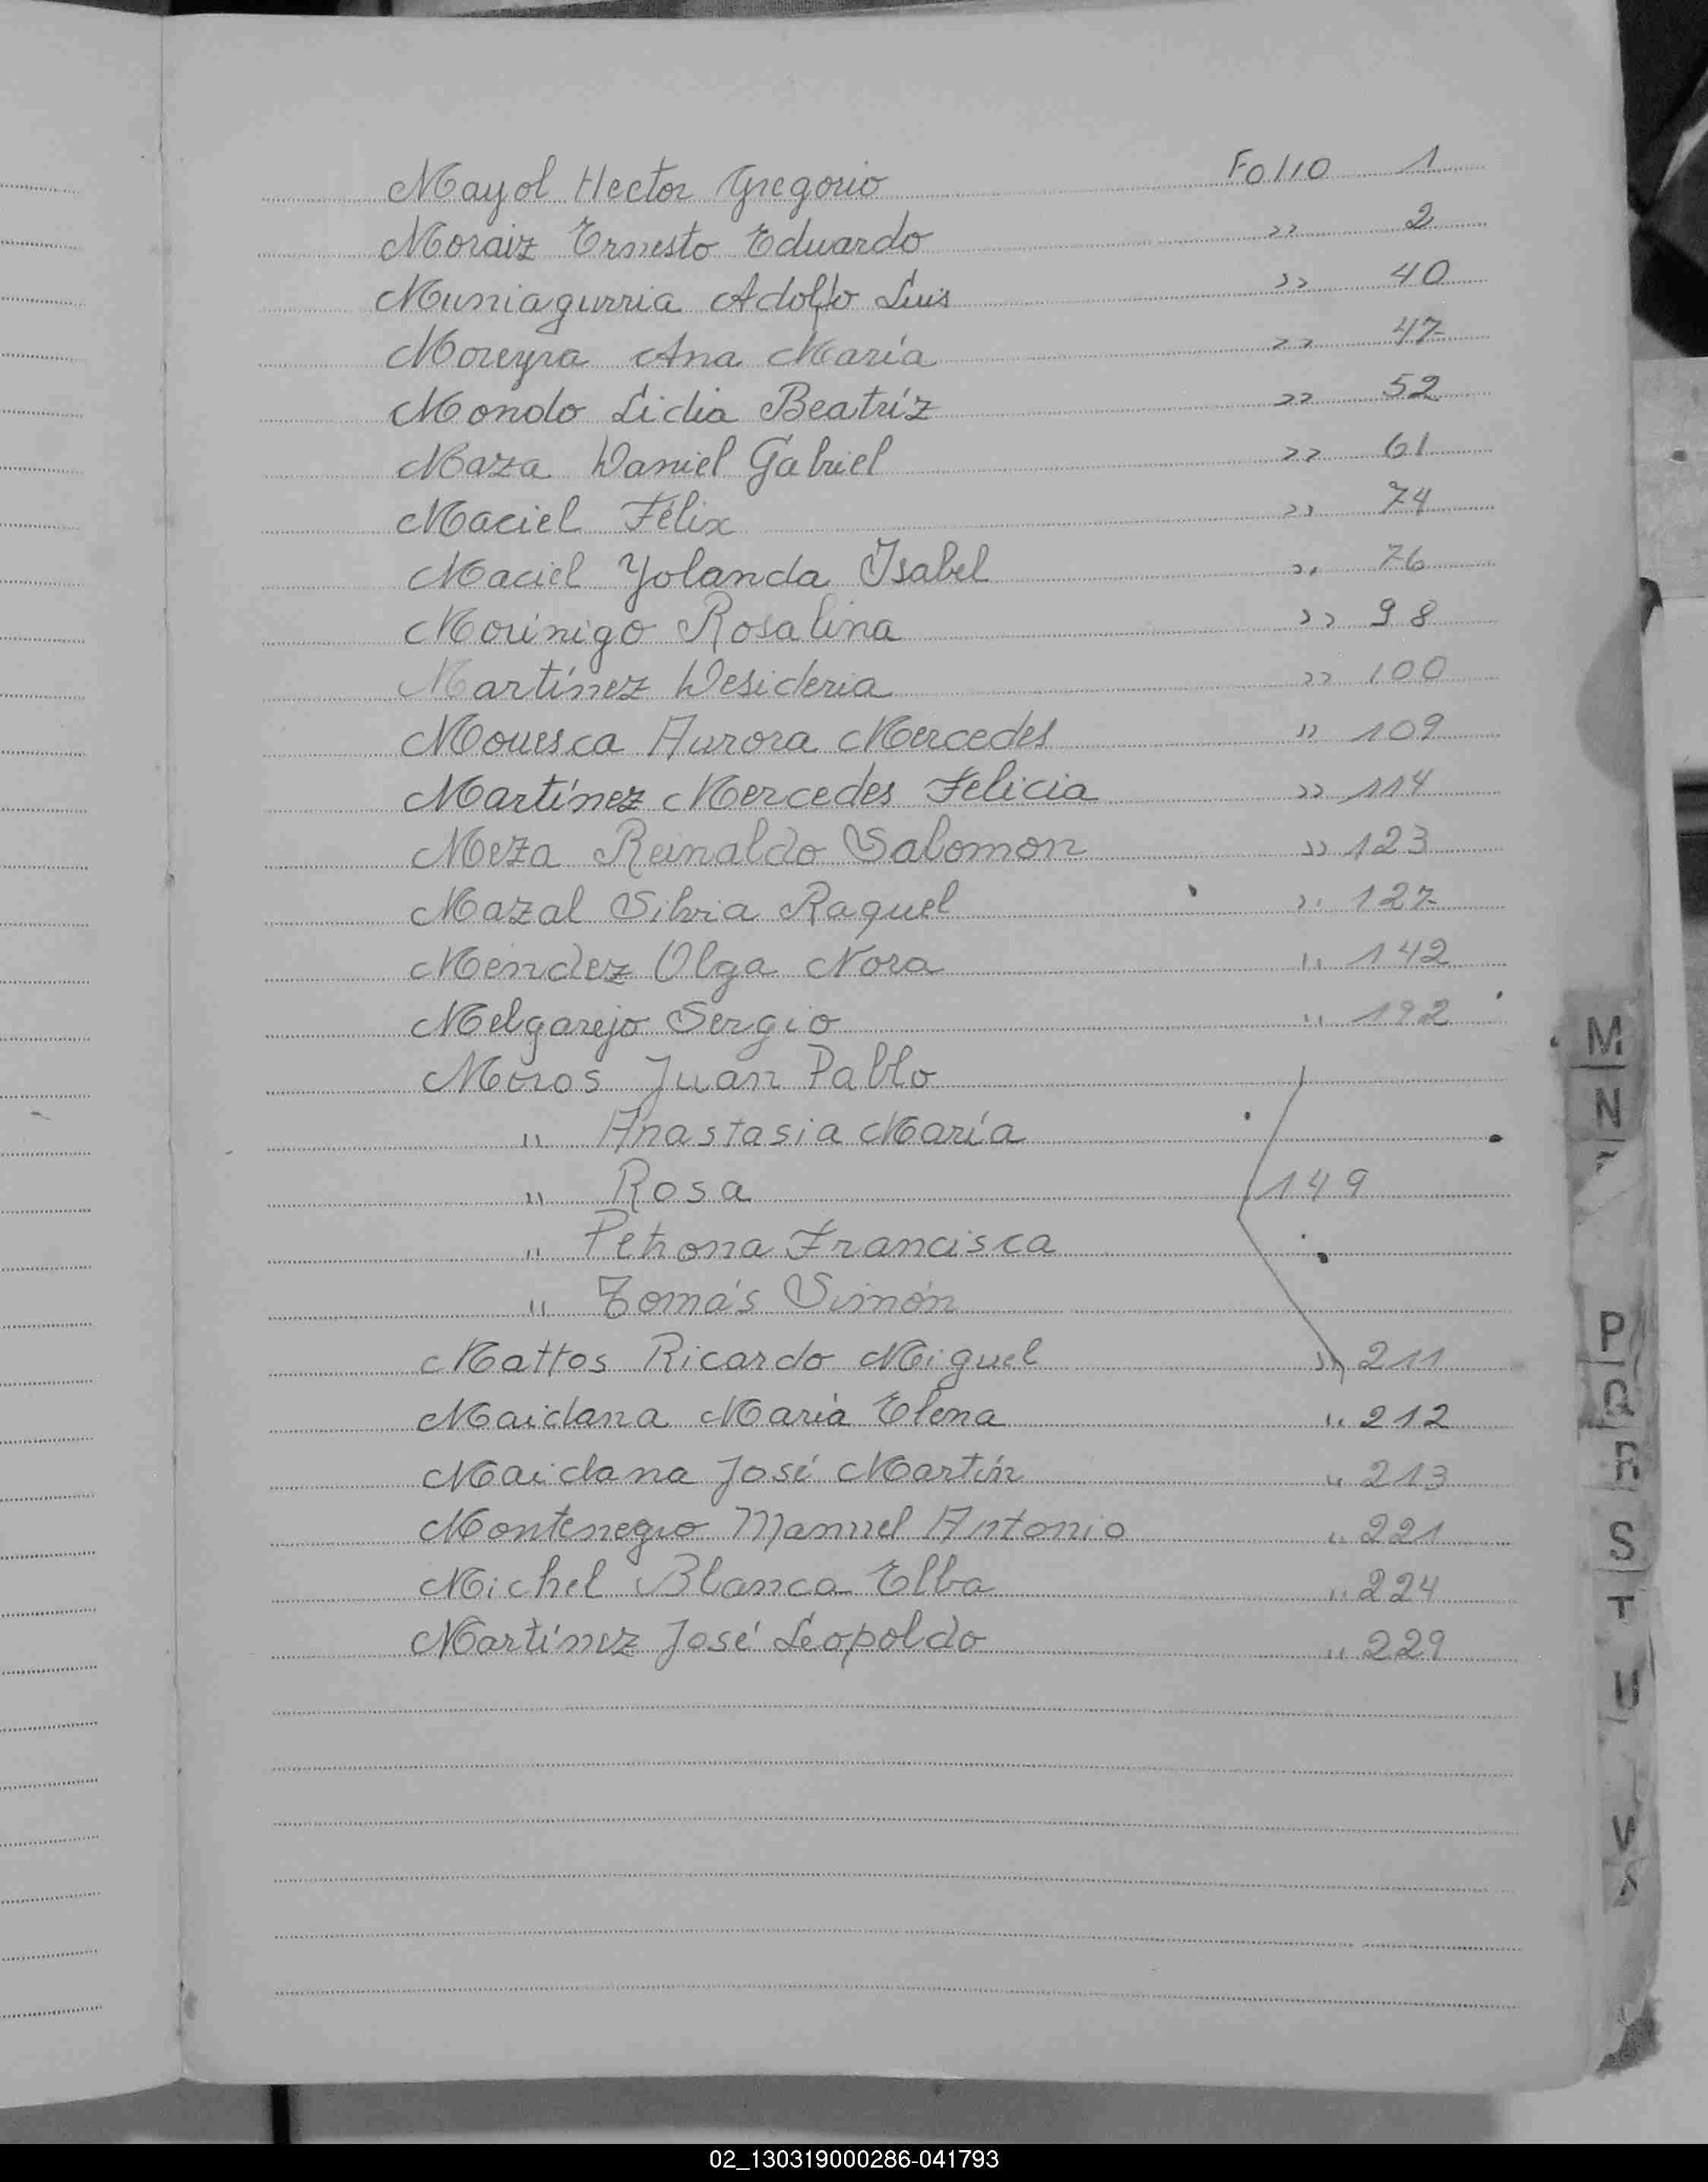 Mayol Hector Gregorio Folio 1
Moraiz Ernesto Eduardo " 2
Muniagurria Adolfo Luis " 40
Moreyra Ana María " 47
Mondo Lidia Beatríz " 52
Maza Daniel Gabriel " 61
Maciel Félix " 74
Maciel Yolanda Isabel " 76
Morinigo Rosalina " 98
Martínez Desideria " 100
Mouesca Aurora Mercedes " 109
Martínez Mercedes Felicia " 114
Meza Reinaldo Salomon " 123
Mazal Silvia Raquel " 127
Mendez Olga Nora " 142
Melgarejo Sergio " 192
Moros Juan Pablo
" Anastasia María
" Rosa 149
" Petrona Francisca
" Tomás Simón
Mattos Ricardo Miguel " 211
Maidana María Elena " 212
Maidana José Martín " 213
Montenegro Manuel Antonio " 221
Michel Blanca Elba " 224
Martínez José Leopoldo " 229
M
N
P
Q
R
S
T
U
V
02_130319000286-041793